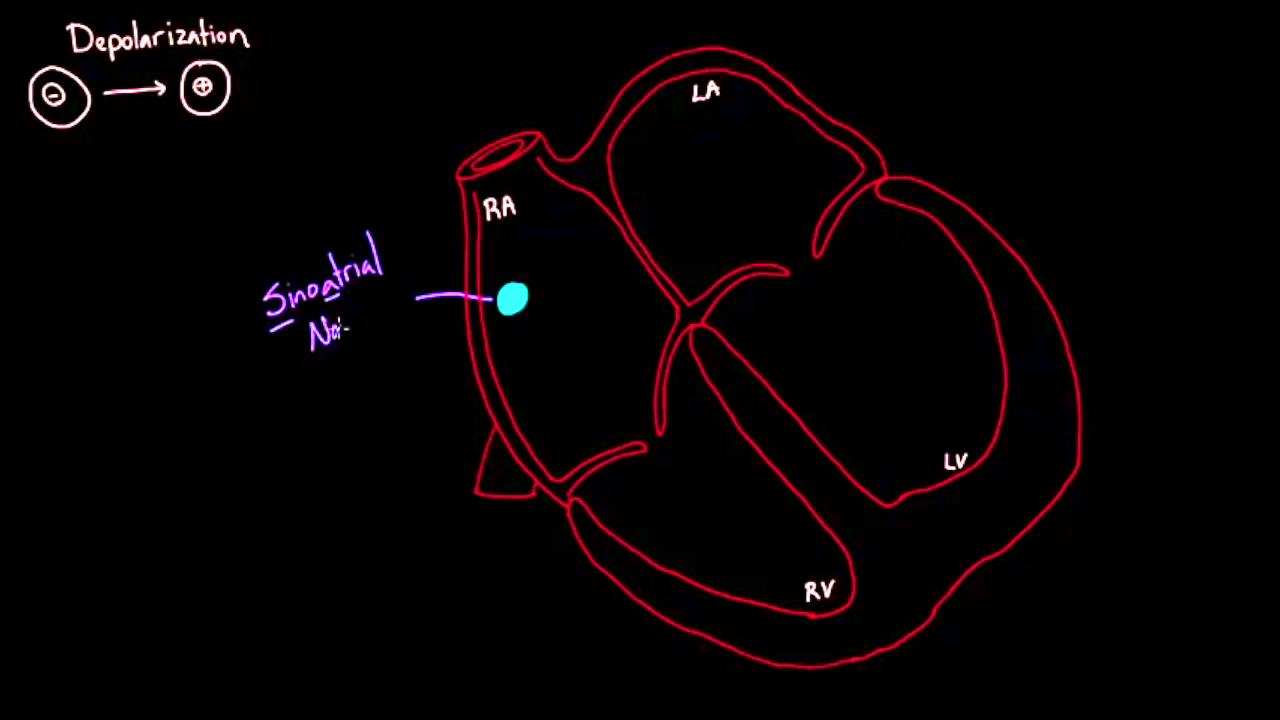 Depolarization
- → +
LA
RA
Sinoatrial
LV
RV